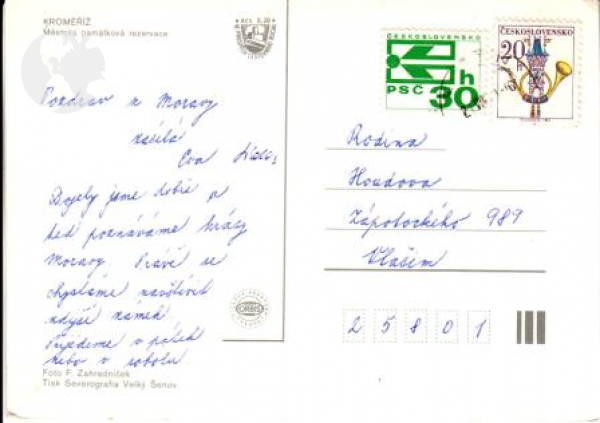 KROMĚŘÍŽ
Městská památková rezervace
KčS 0,20
ČESKOSLOVENSKO
PSČ 30h
ČESKOSLOVENSKO
20 h
Pozdrav z Moravy
zasílá
Eva
Dojely jsme dobře a
teď poznáváme krásy
Moravy. Právě se
chystáme navštívit
zdejší zámek.
Přijedeme v pátek
nebo v sobotu.
Rodina
Houdova
Zápotockého 989
Vlašim
25801
ORBIS
Foto F. Zahradníček
Tisk Severografia Velký Šenov